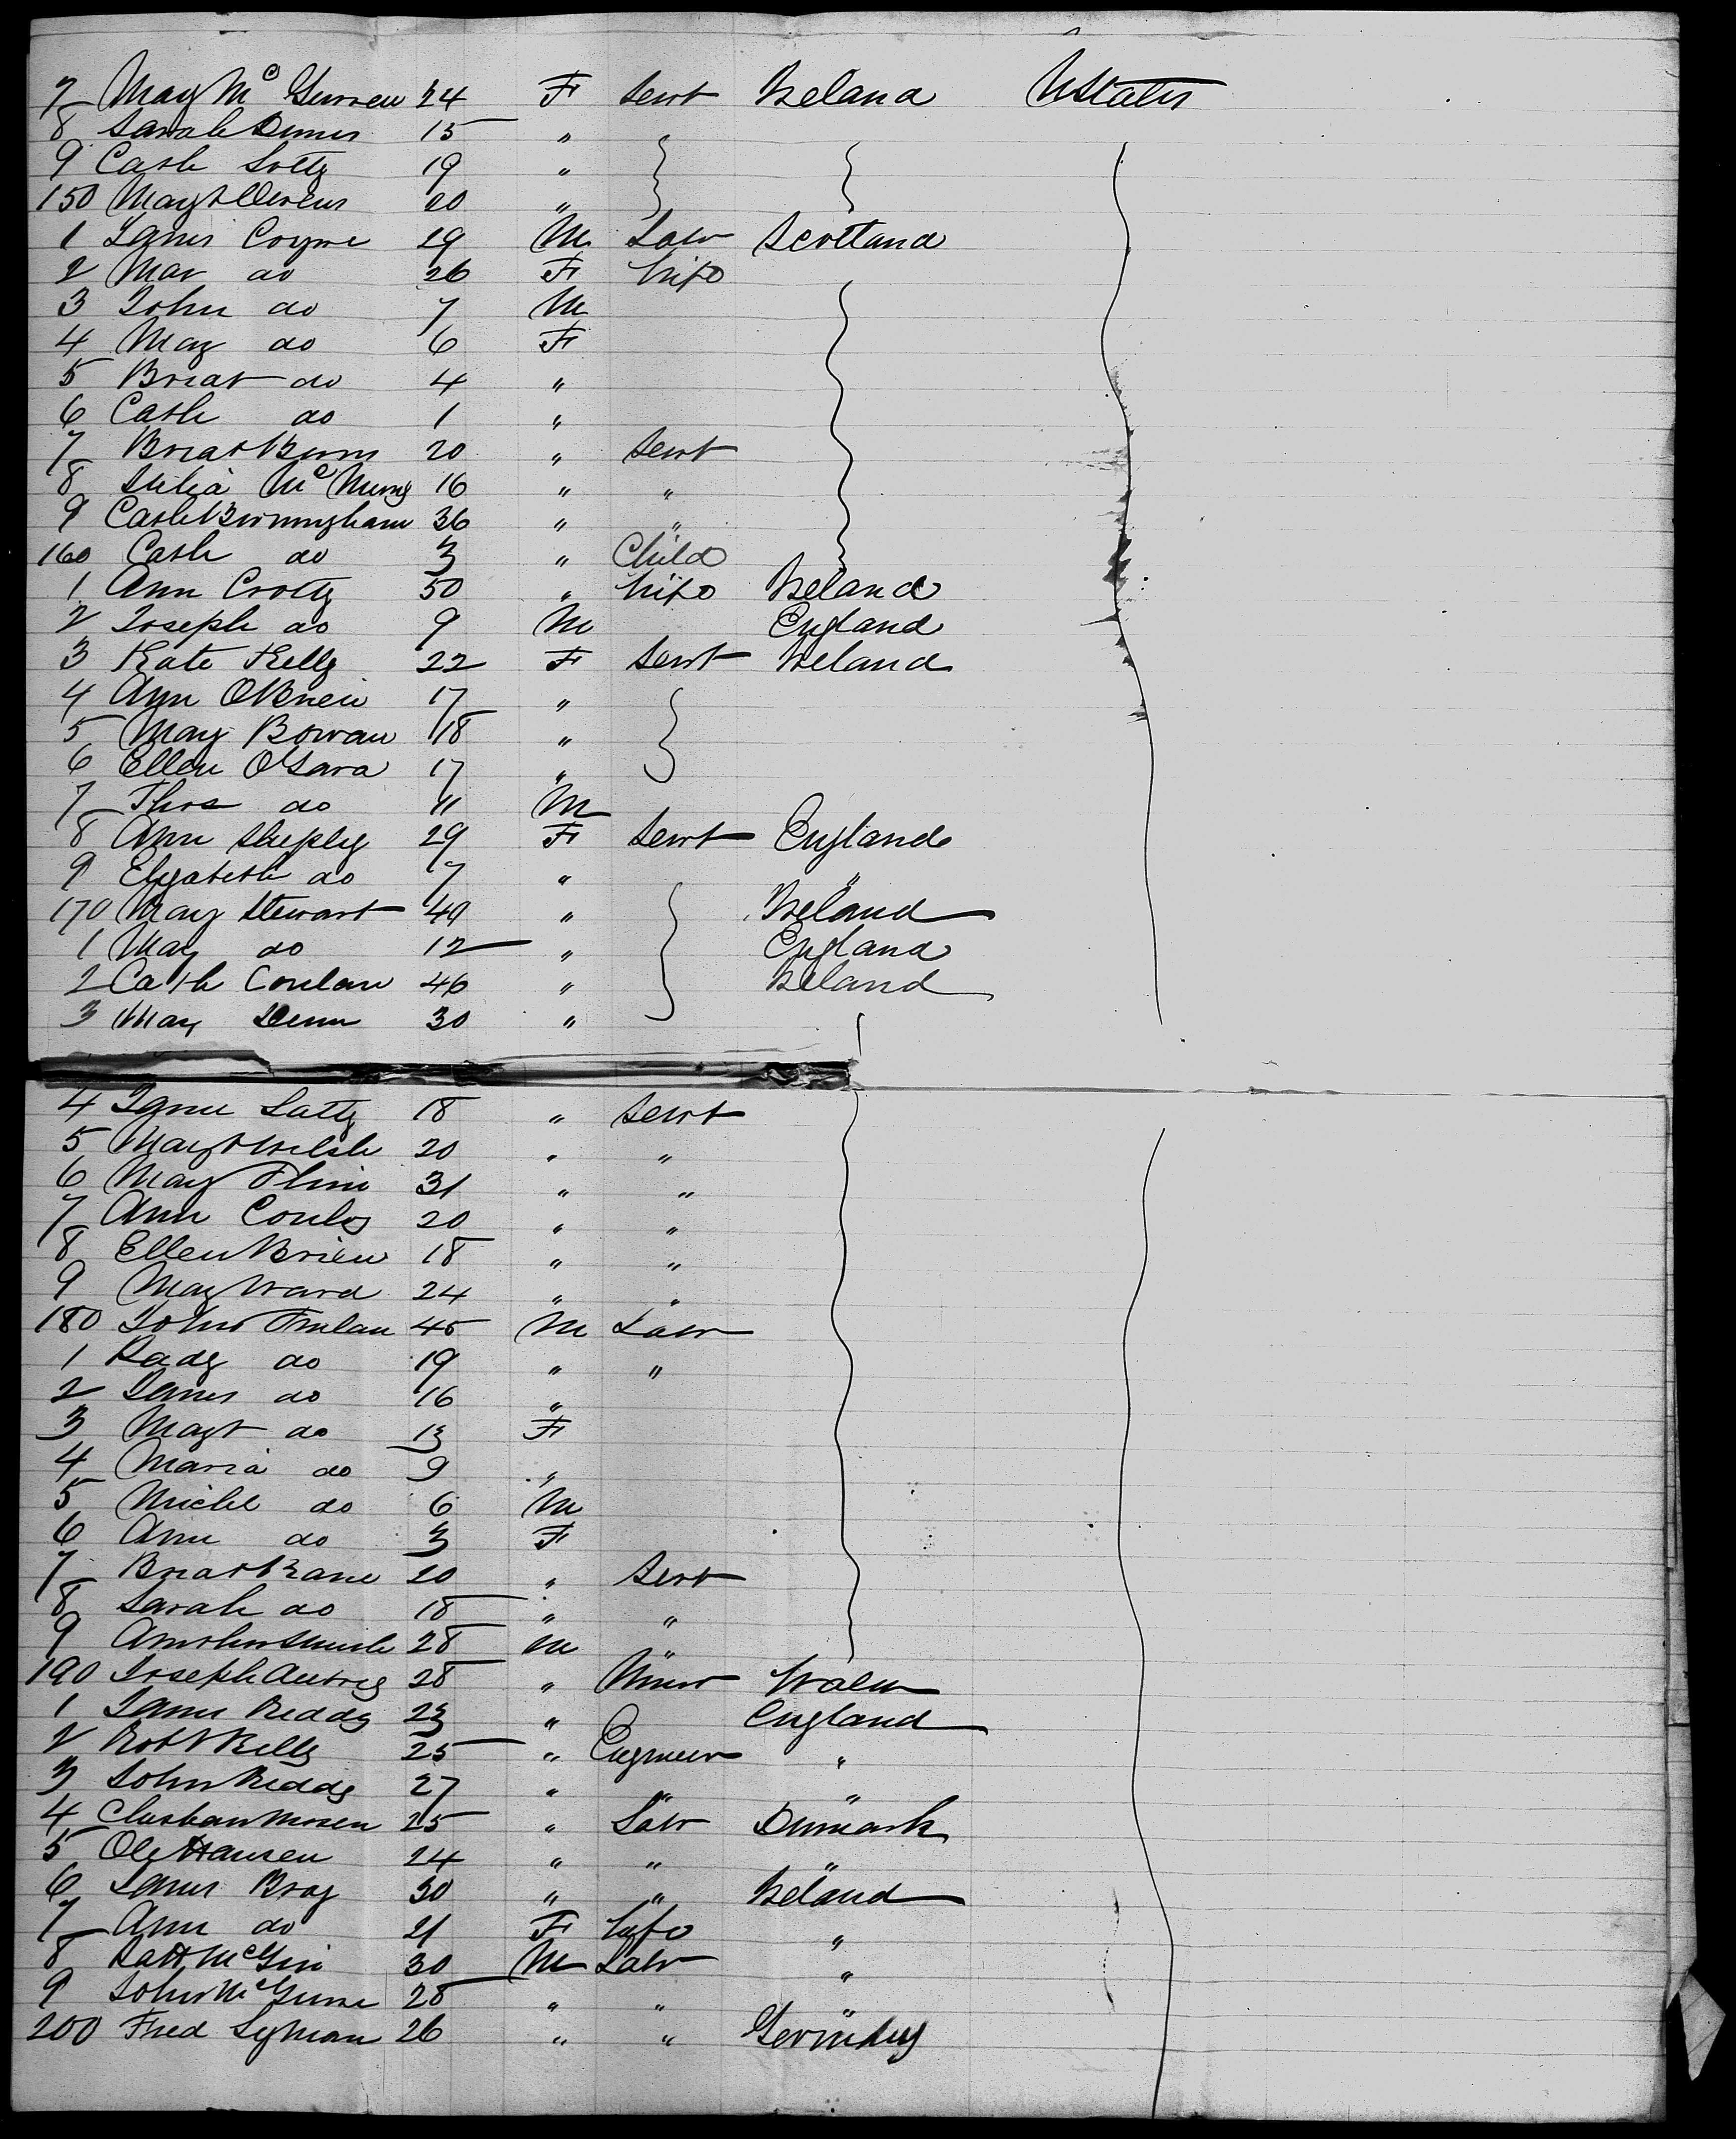 7 Mary McGurren 24 F Servt Ireland UStates
8 Sarah 15 "
9 Cath 19 "
150 Margt Owens 20 "
1 James Coyne 29 M Labr Scotland
2 Mar do 26 F Wife
3 John do 7 M
4 Mary do 6 F
5 Bridt do 4 "
6 Cath do 1 "
7 Bridt Burns 20 " Servt
8 Julia Mc 16 " "
9 Cath Birmingham 36 " "
160 Cath do 3 " Child
1 Ann Crotty 50 " Wife Ireland
2 Joseph do 9 M England
3 Kate Kelly 22 F Servt Ireland
4 Ann OBrien 17 "
5 Mary Bowan 18 "
6 Ellen 17 "
7 Thos do 11 M
8 Ann Shepley 29 F Servt England
9 Elizabeth do 7 " "
170 Mary Stewart 49 " Ireland
1 Mary do 12 " England
2 Cath Conlan 46 " Ireland
3 Mary 30 "
4 Jane 18 " Servt
5 Margt Welsh 20 " "
6 Mary 31 " "
7 Ann 20 " "
8 Ellen Brien 18 " "
9 Mary Ward 24 " "
180 John 45 M Labr
1 do 19 " "
2 James do 16 "
3 Magt do 13 F
4 Maria do 9 "
5 Michl do 6 M
6 Ann do 3 F
7 Bridt Kane 20 " Servt
8 Sarah do 18 " "
9 28 M "
190 Joseph 28 " Miner Wales
1 James Reddy 23 " England
2 Robt Kelly 25 " Engineer "
3 John Reddy 27 " " "
4 25 " Labr Denmark
5 Ole Hansen 24 " " "
6 James Bray 30 " " Ireland
7 Ann do 21 F Wife "
8 Patt McGin 30 M Labr "
9 John 28 " " "
200 Fred 26 " " Germany